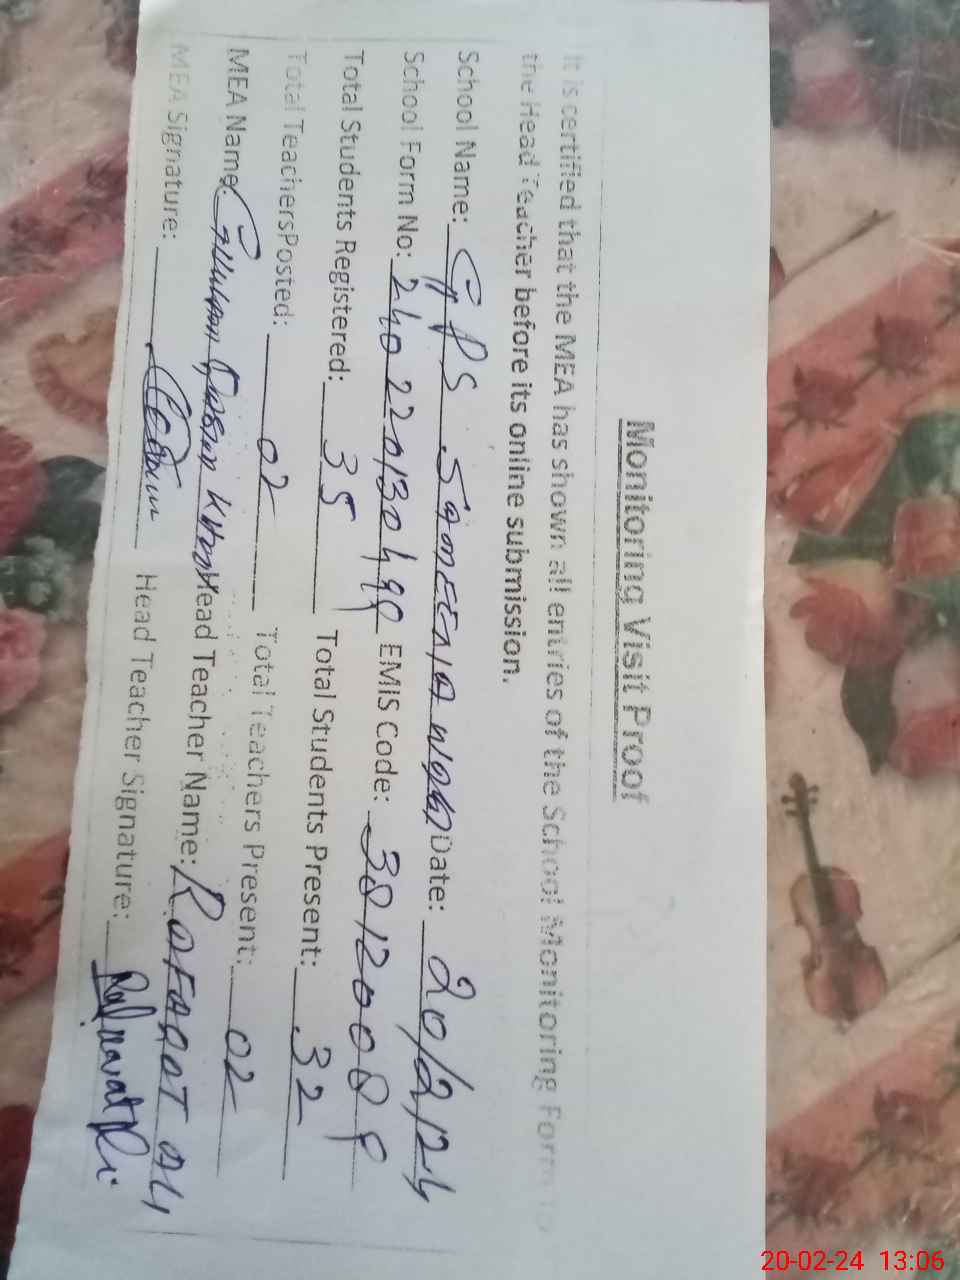 Monitoring Visit Proof
It is certified that the MEA has shown all entries of the School Monitoring Form to
the Head Teacher before its online submission.
School Name: GPS Date: 20/2/24
School Form No: EMIS Code: 38120089
Total Students Registered: 35 Total Students Present: 32
Total TeachersPosted: 02 Total Teachers Present: 02
MEA Name: Ghulam Head Teacher Name: RAFAQAT ALI
MEA Signature: Head Teacher Signature: Rafaqat Ali
20-02-24 13:06